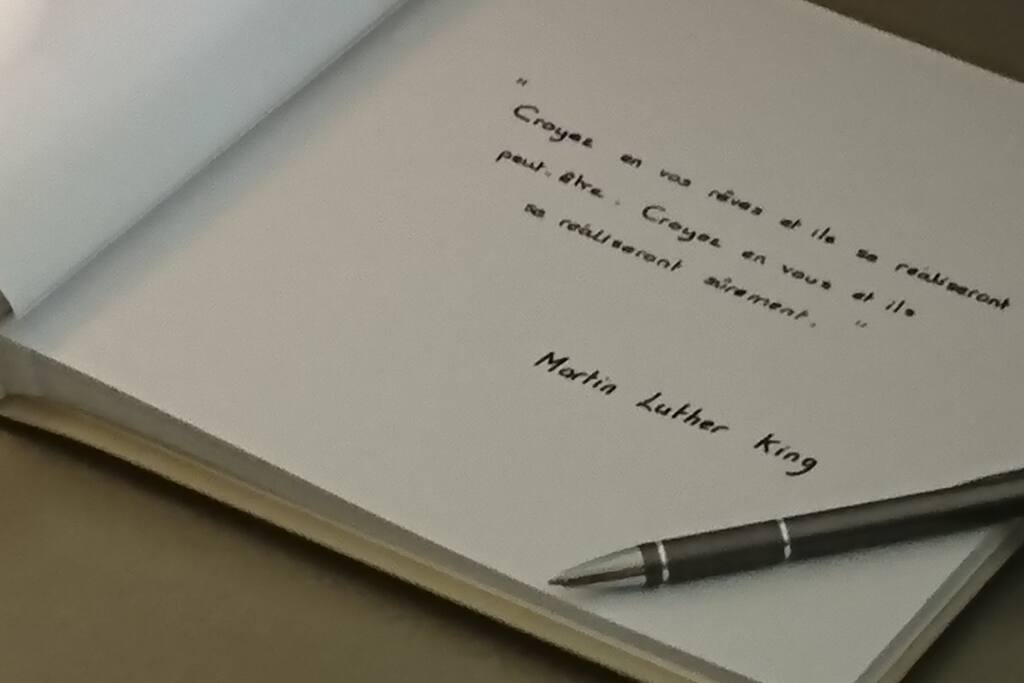 "
Croyez en vos rêves et ils se réaliseront
peut-être. Croyez en vous et ils
se réaliseront sûrement. "
Martin Luther King